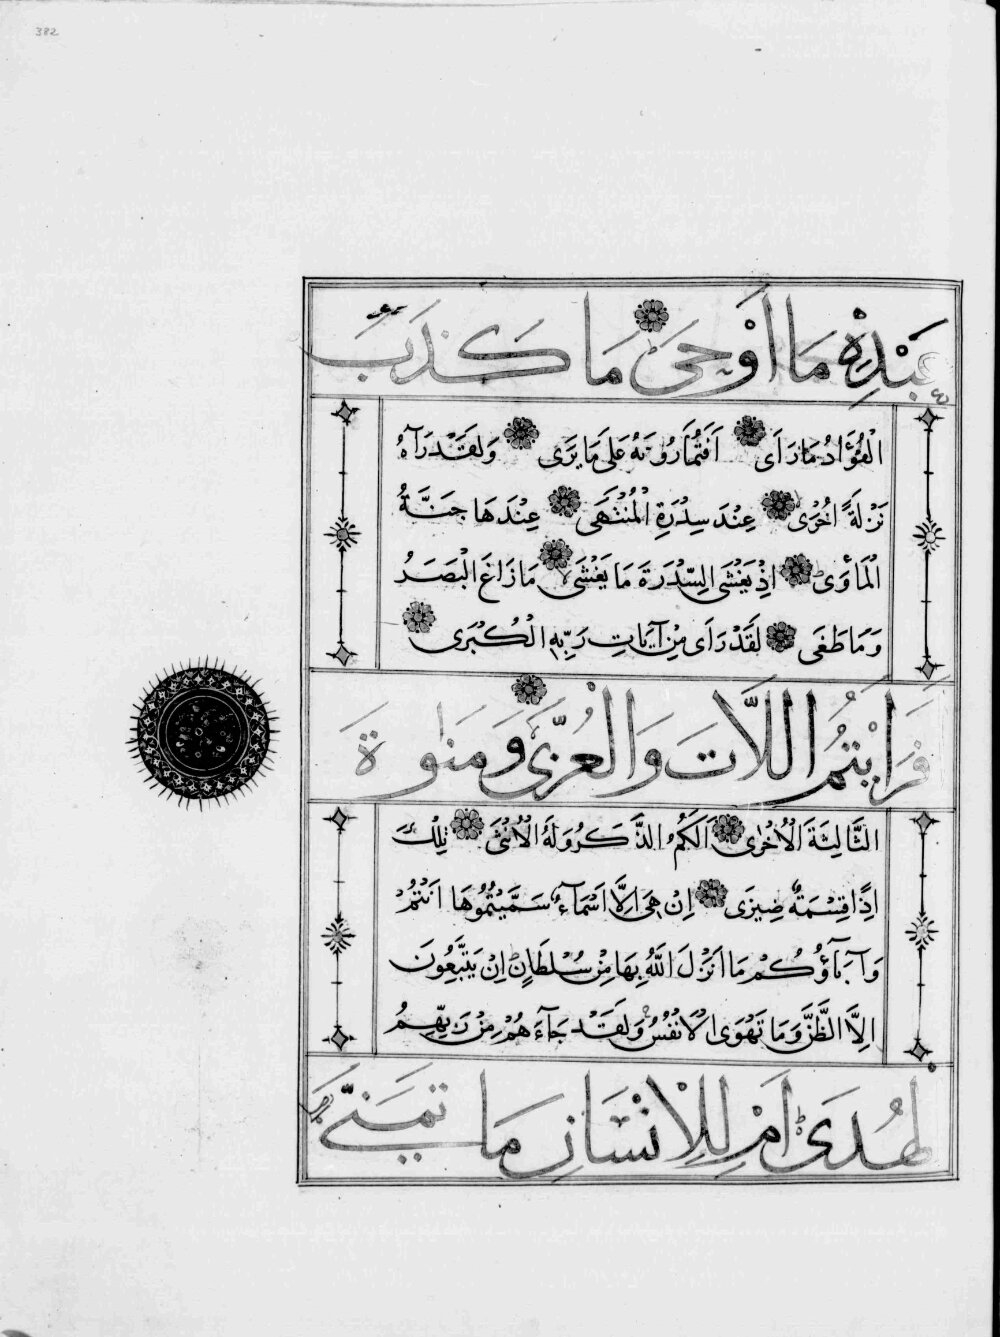 382
عَبْدِهِ مَا أَوْحَىٰ مَا كَذَبَ
الْفُؤَادُ مَا رَأَى أَفَتُمَارُونَهُ عَلَى مَا يَرَى وَلَقَدْ رَآهُ
نَزْلَةً أُخْرَى عِنْدَ سِدْرَةِ الْمُنْتَهَى عِنْدَهَا جَنَّةُ
الْمَأْوَى إِذْ يَغْشَى السِّدْرَةَ مَا يَغْشَى مَا زَاغَ الْبَصَرُ
وَمَا طَغَى لَقَدْ رَأَى مِنْ آيَاتِ رَبِّهِ الْكُبْرَى
فَرَأَيْتُمُ اللَّاتَ وَالْعُزَّىٰ وَمَنٰوةَ
الثَّالِثَةَ الْأُخْرٰى أَلَكُمُ الذَّكَرُ وَلَهُ الْأُنْثَى تِلْكَ
إِذًا قِسْمَةٌ ضِيزَى إِنْ هِيَ إِلَّا أَسْمَاءٌ سَمَّيْتُمُوهَا أَنْتُمْ
وَآبَاؤُكُمْ مَا أَنْزَلَ اللَّهُ بِهَا مِنْ سُلْطَانٍ إِنْ يَتَّبِعُونَ
إِلَّا الظَّنَّ وَمَا تَهْوَى الْأَنْفُسُ وَلَقَدْ جَاءَهُمْ مِنْ رَبِّهِمُ
الْهُدَىٰ أَمْ لِلْإِنْسَانِ مَا تَمَنَّىٰ